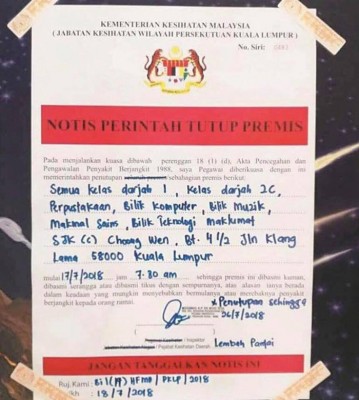 KEMENTERIAN KESIHATAN MALAYSIA
( JABATAN KESIHATAN WILAYAH PERSEKUTUAN KUALA LUMPUR )
No. Siri:
NOTIS PERINTAH TUTUP PREMIS
Pada menjalankan kuasa dibawah perenggan 18 (1) (d), Akta Pencegahan dan
Pengawalan Penyakit Berjangkit 1988, saya Pegawai diberikuasa dengan ini
memerintahkan penutupan seluruh premis/sebahagian premis berikut:
Semua Kelas darjah 1 , Kelas darjah 2C,
Perpustakaan, Bilik Komputer, Bilik Muzik,
Makmal Sains, Bilik Teknologi Maklumat
SJK (C) Choong Wen, Bt. 4 1/2 Jln Klang
Lama 58000 Kuala Lumpur
mulai 17/7/2018 jam 7.30 am sehingga premis ini dibasmi kuman,
dibasmi serangga atau dibasmi tikus dengan sempurnanya, atau alasan ianya berada
dalam keadaan yang mungkin menyebabkan bermulanya atau merebaknya penyakit
berjangkit kepada orang ramai.
* Penutupan sehingga
26/7/2018
Pejabat Kesihatan Daerah Lembah Pantai
JANGAN TANGGALKAN NOTIS INI
Ruj. Kami : Bil(19) HFMD / PKLP / 2018
18 / 7 / 2018